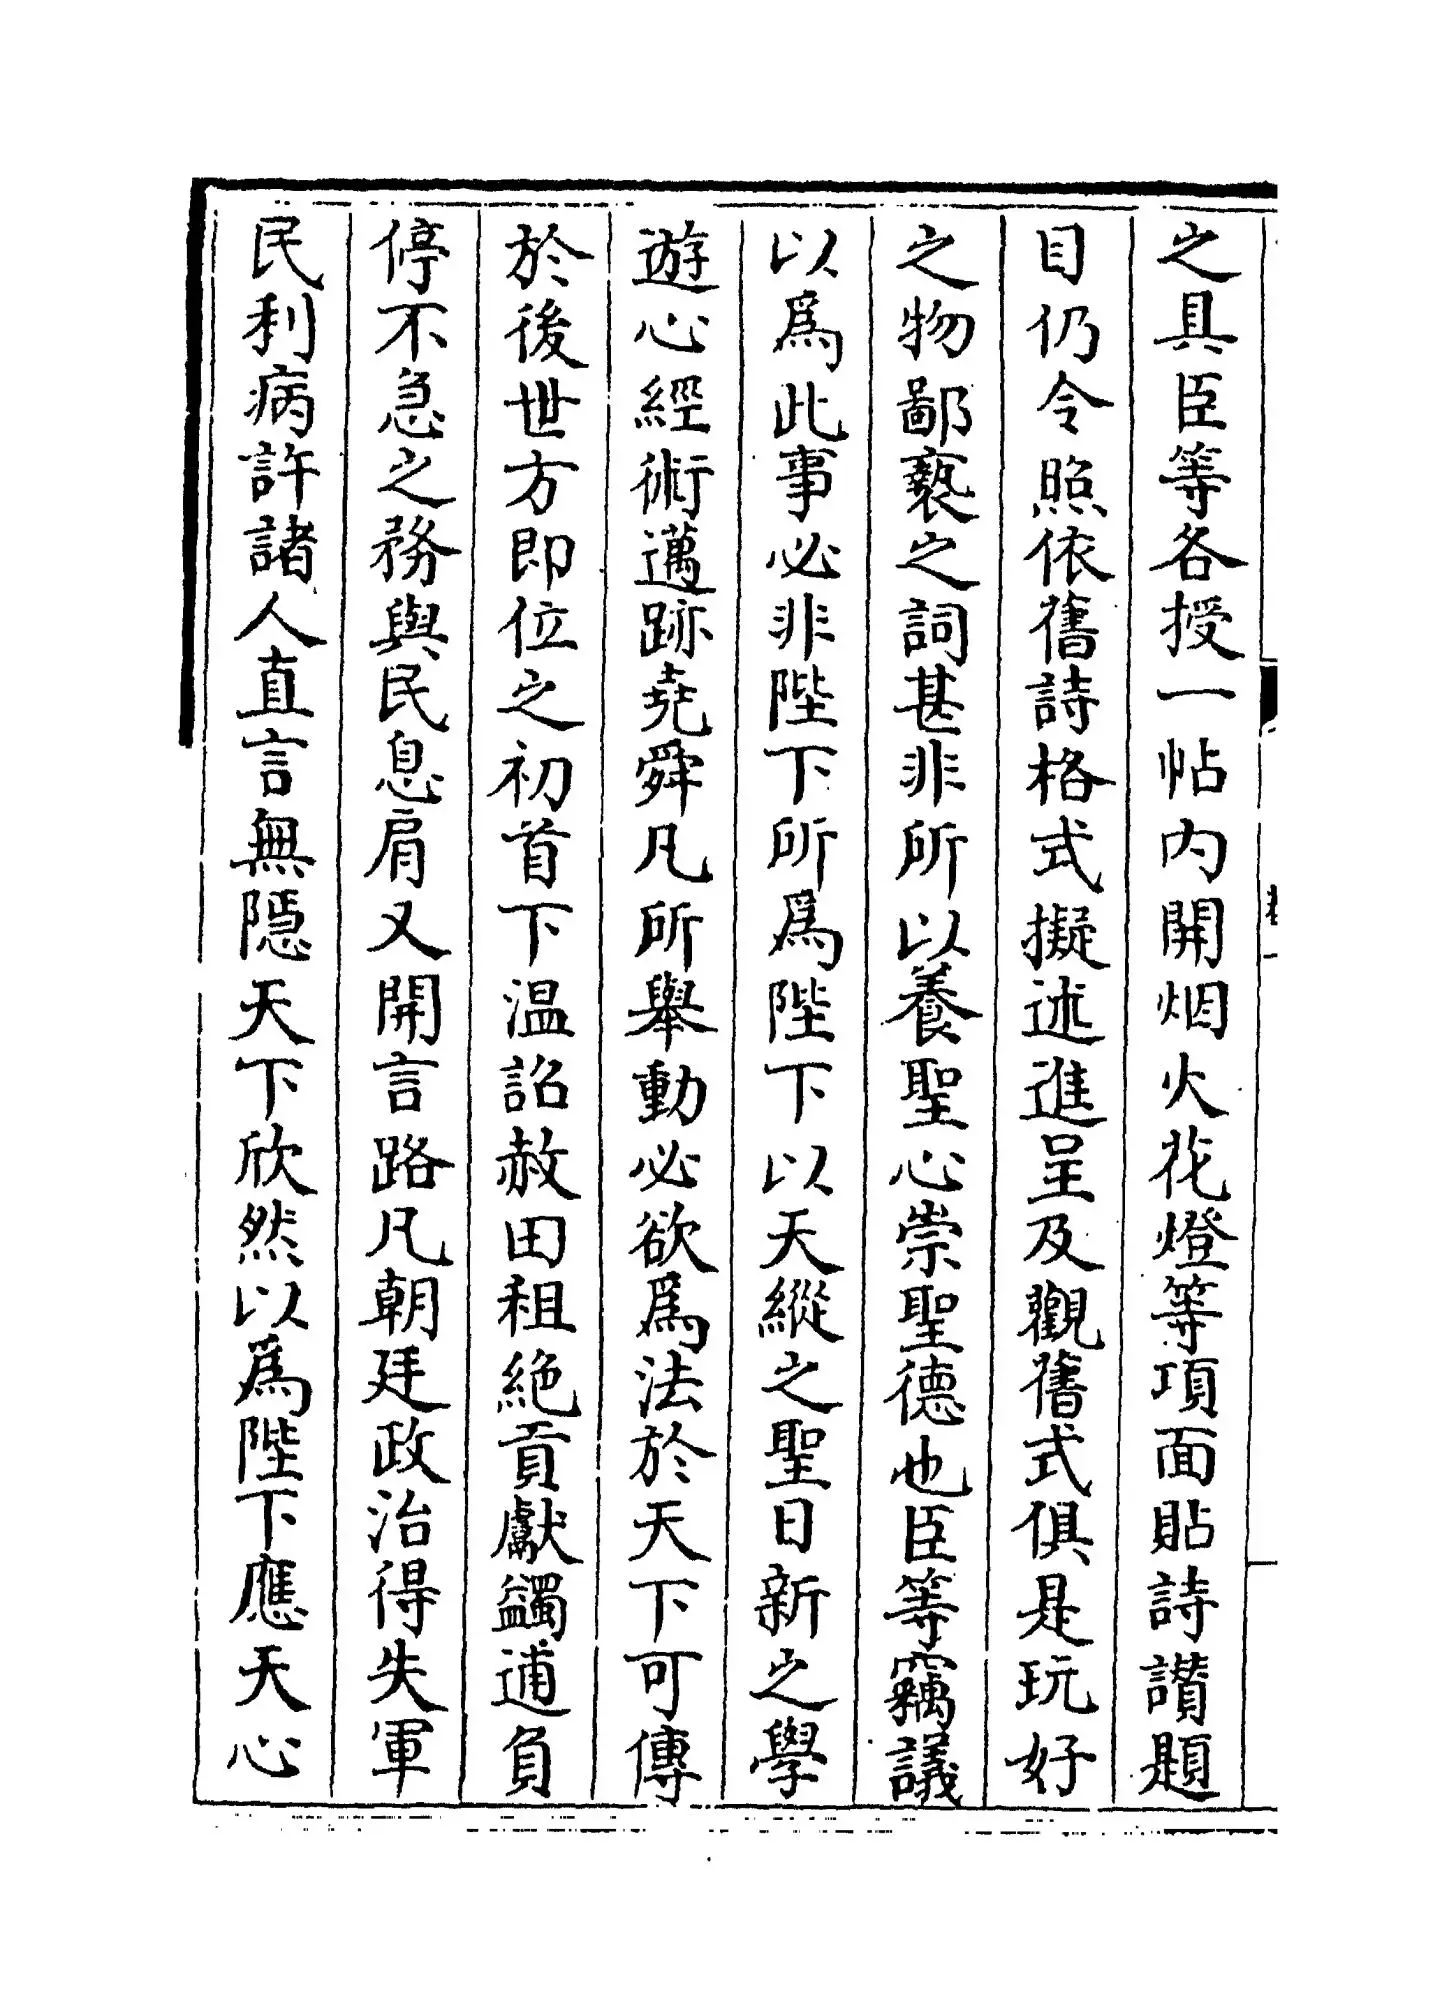 之具臣等各授一帖内開烟火花燈等項面貼詩讃題
目仍令照依舊詩格式擬述進呈及觀舊式俱是玩好
之物鄙褻之詞甚非所以養聖心崇聖德也臣等竊議
以為此事必非陛下所為陛下以天縱之聖日新之學
遊心經術邁跡堯舜凡所舉動必欲為法於天下可傳
於後世方即位之初首下温詔赦田租絶貢獻蠲逋負
停不急之務與民息肩又開言路凡朝廷政治得失軍
民利病許諸人直言無隱天下欣然以為陛下應天心